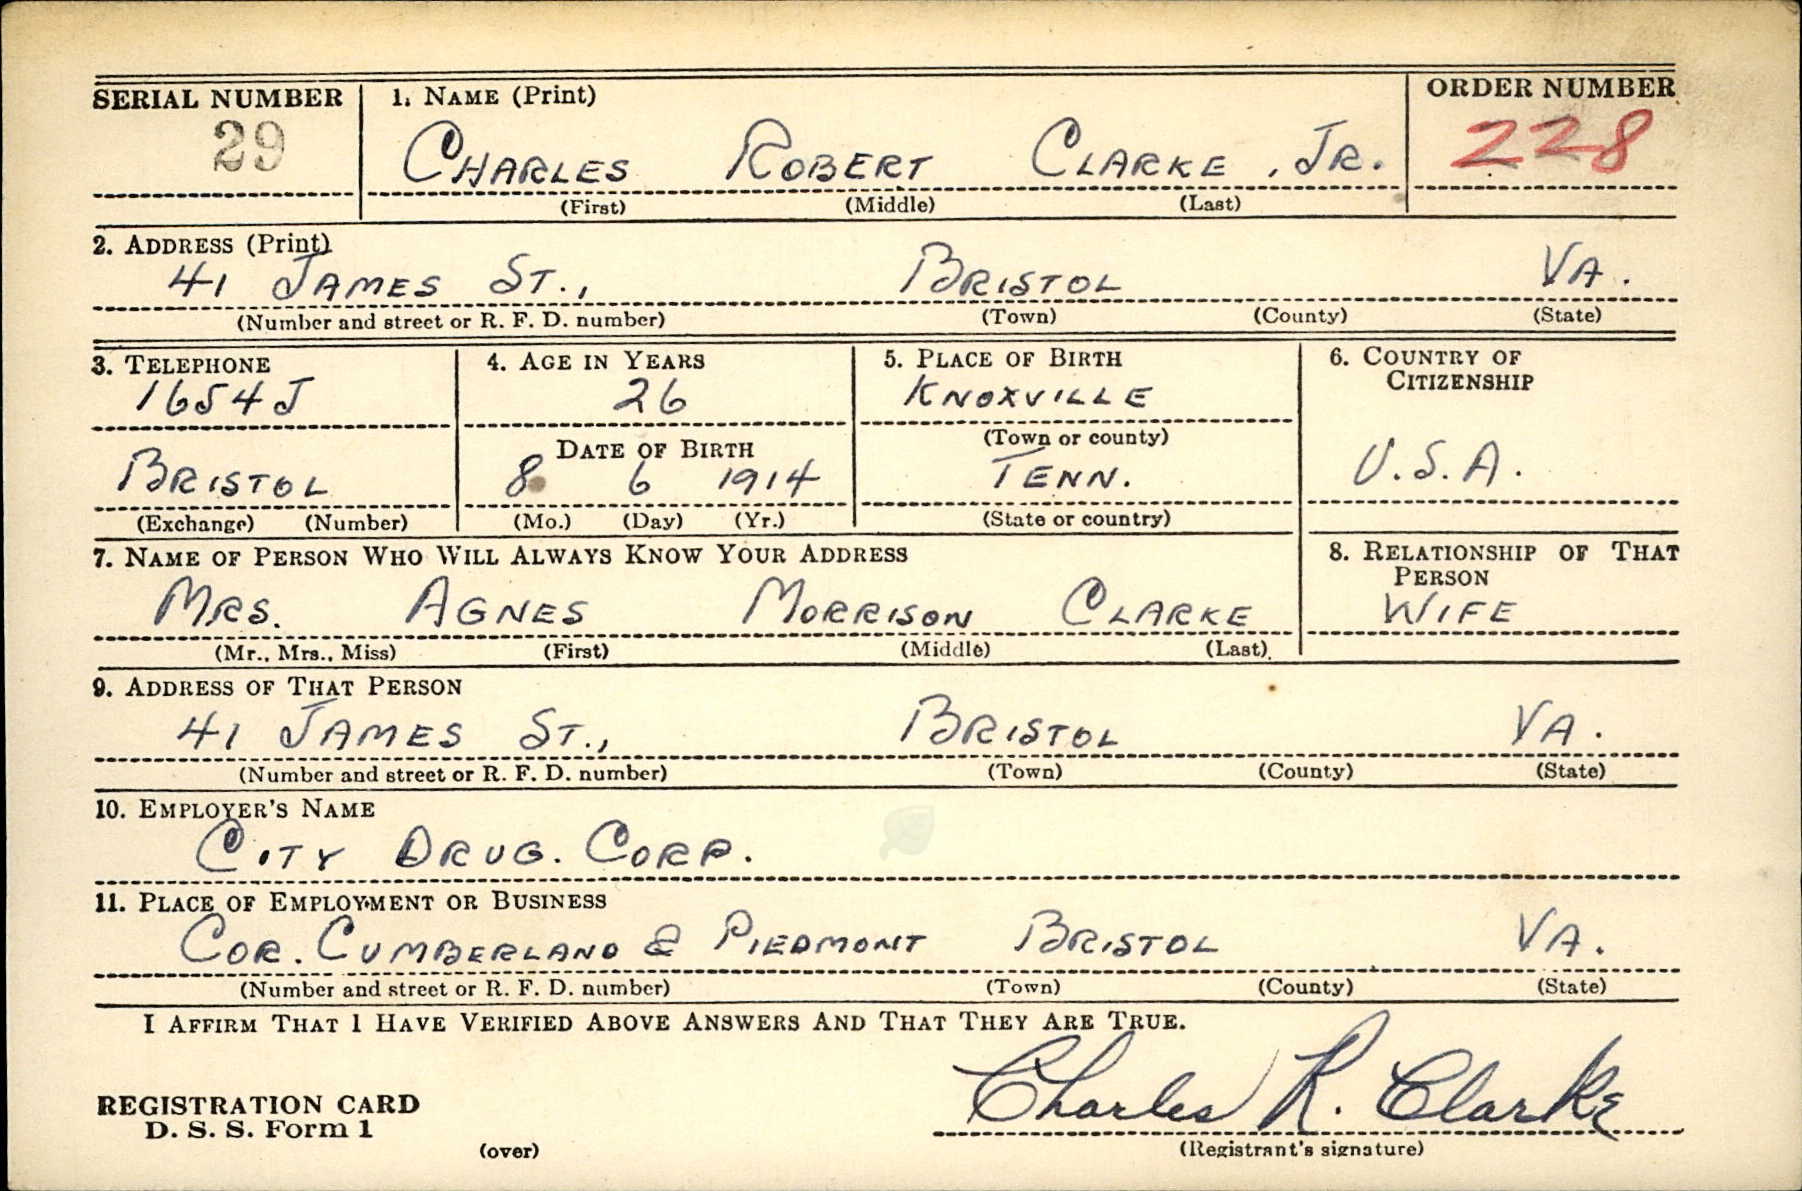 SERIAL NUMBER 1. NAME (Print) ORDER NUMBER
29 CHARLES ROBERT CLARKE, JR. 228
(First) (Middle) (Last)
2. ADDRESS (Print)
41 JAMES ST., BRISTOL VA.
(Number and street or R. F. D. number) (Town) (County) (State)
3. TELEPHONE 4. AGE IN YEARS 5. PLACE OF BIRTH 6. COUNTRY OF
CITIZENSHIP
1654J 26 KNOXVILLE
DATE OF BIRTH (Town or county)
BRISTOL 8 6 1914 TENN. U.S.A.
(Exchange) (Number) (Mo.) (Day) (Yr.) (State or country)
7. NAME OF PERSON WHO WILL ALWAYS KNOW YOUR ADDRESS 8. RELATIONSHIP OF THAT
PERSON
MRS. AGNES MORRISON CLARKE WIFE
(Mr., Mrs., Miss) (First) (Middle) (Last)
9. ADDRESS OF THAT PERSON
41 JAMES ST., BRISTOL VA.
(Number and street or R. F. D. number) (Town) (County) (State)
10. EMPLOYER'S NAME
CITY DRUG. CORP.
11. PLACE OF EMPLOYMENT OR BUSINESS
COR. CUMBERLAND & PIEDMONT BRISTOL VA.
(Number and street or R. F. D. number) (Town) (County) (State)
I AFFIRM THAT I HAVE VERIFIED ABOVE ANSWERS AND THAT THEY ARE TRUE.
REGISTRATION CARD Charles R. Clarke
D. S. S. Form 1
(over) (Registrant's signature)